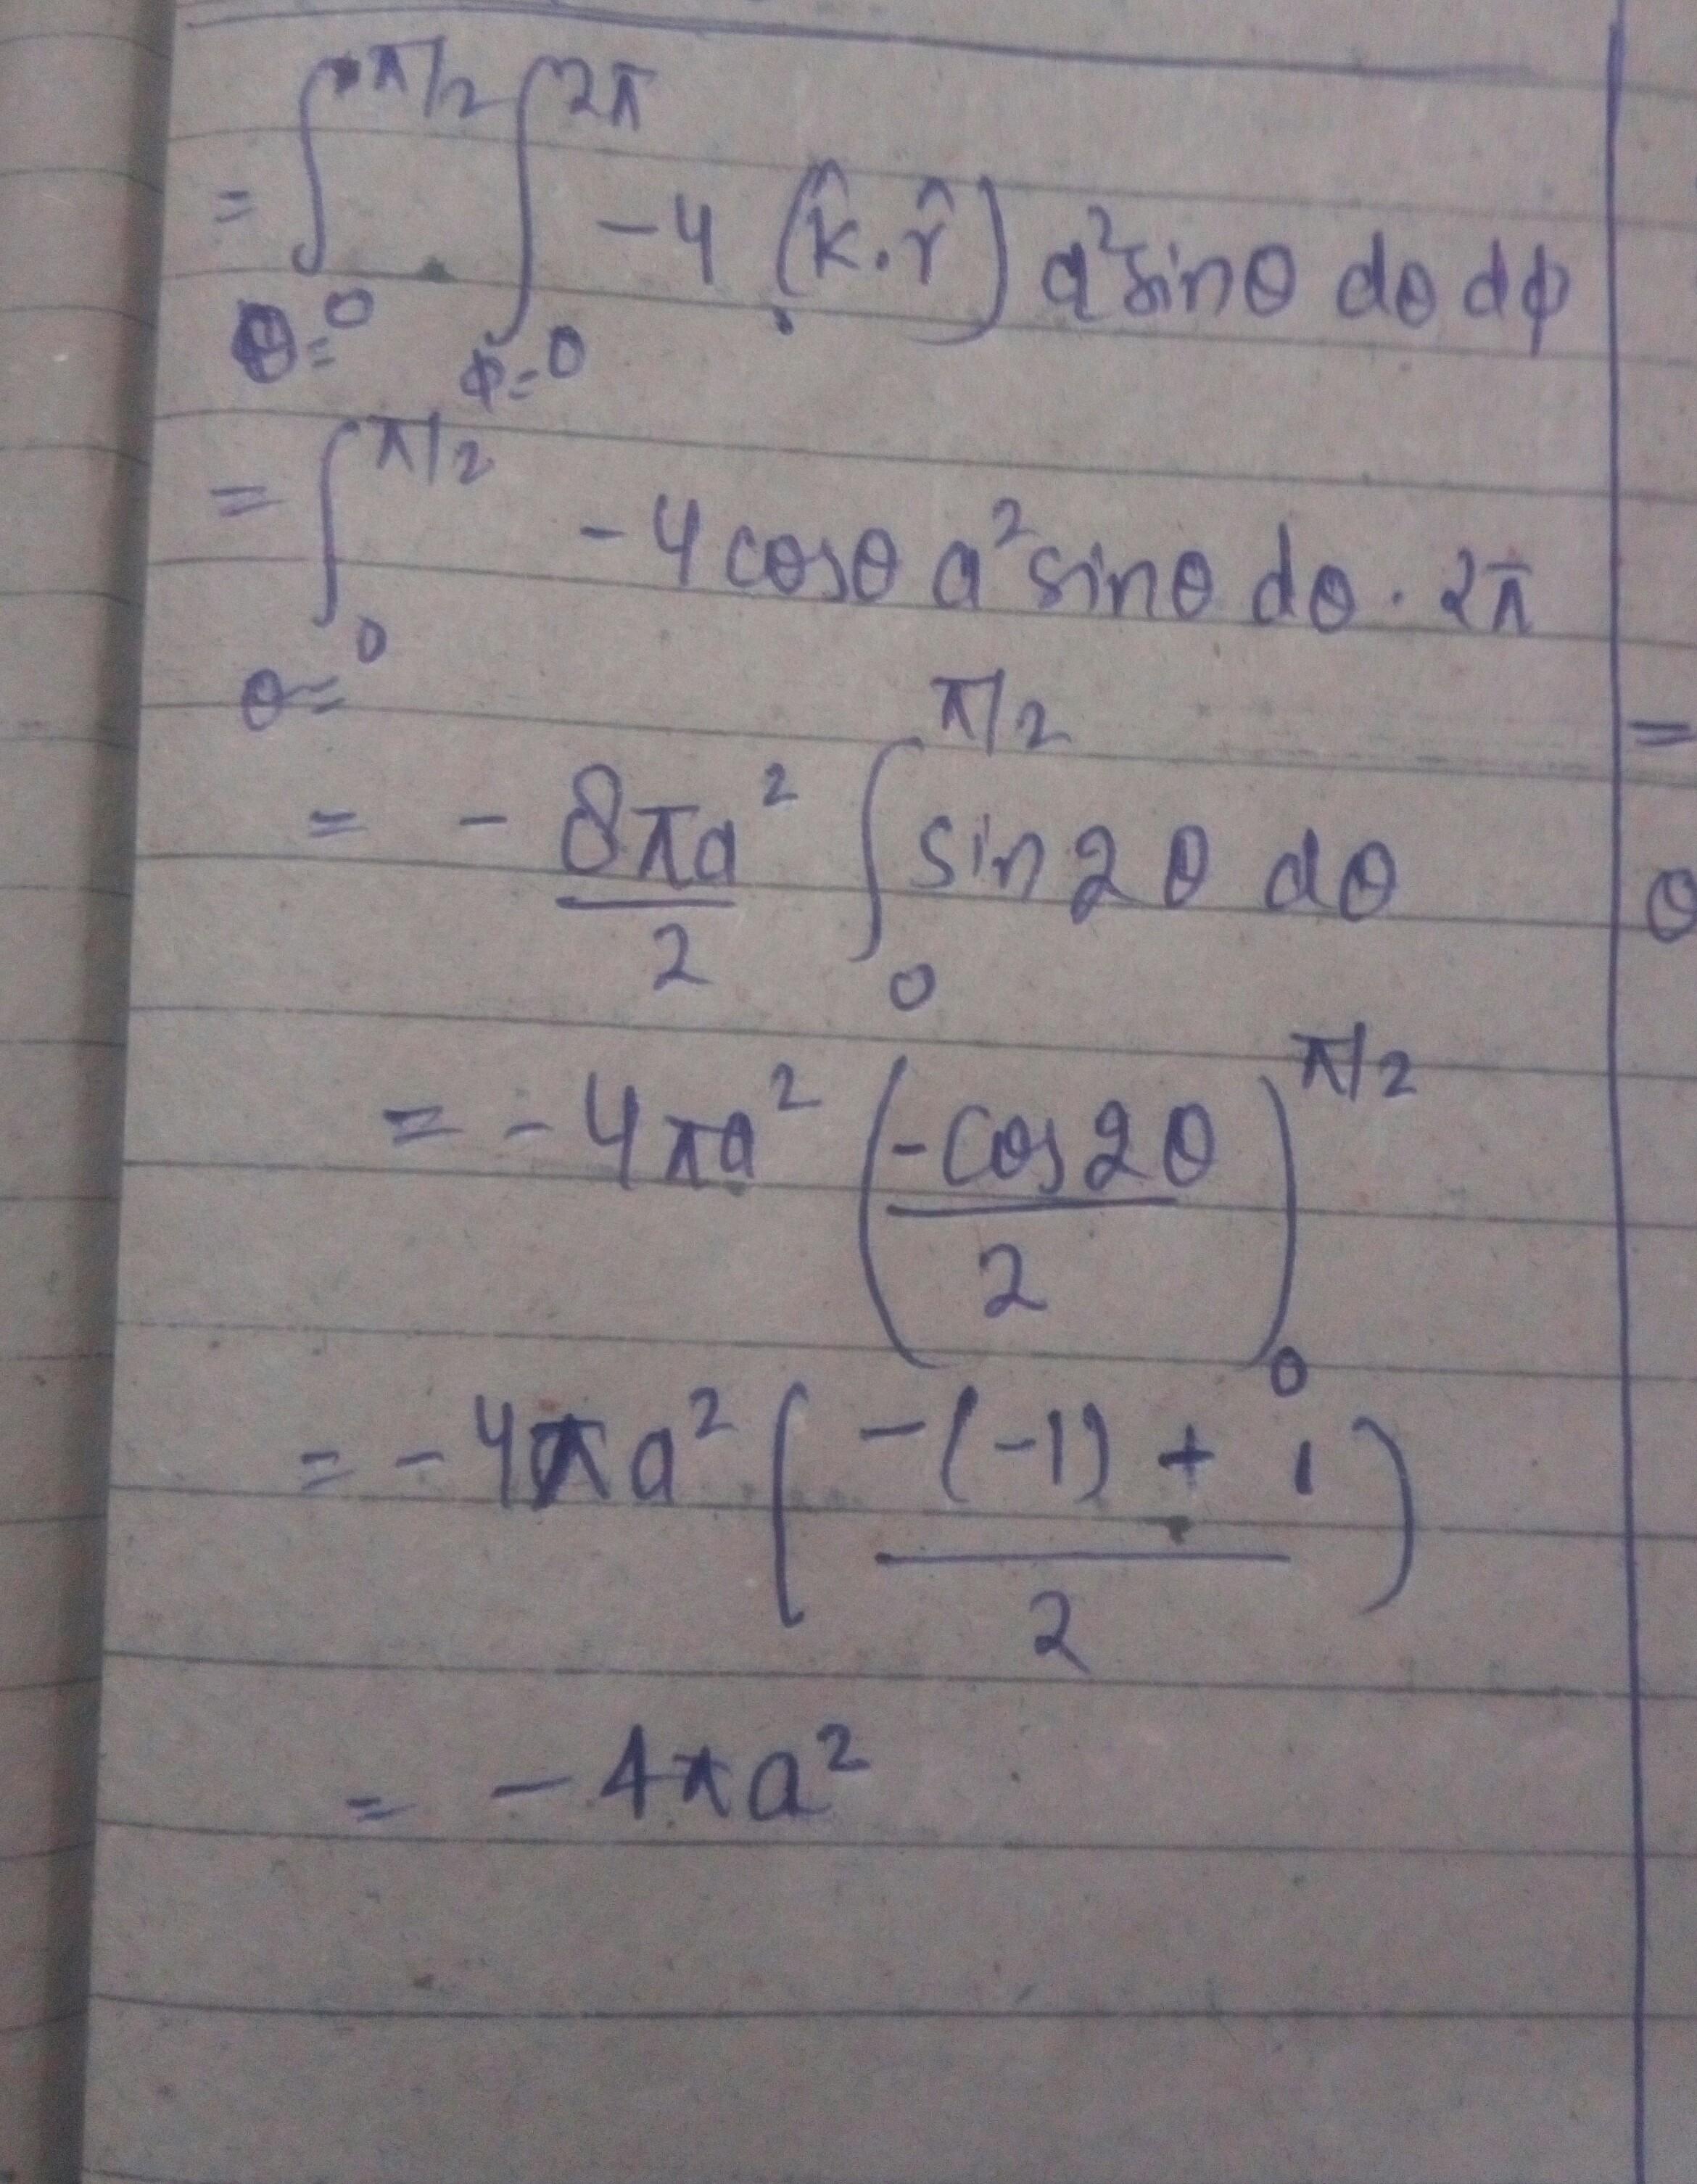 = ∫_{θ=0}^{π/2} ∫_{φ=0}^{2π} -4 (k̂.r̂) a² sinθ dθ dφ
= ∫_{θ=0}^{π/2} -4 cosθ a² sinθ dθ · 2π
= - 8πa²/2 ∫_0^{π/2} sin 2θ dθ
= - 4πa² (-cos2θ/2)_0^{π/2}
= - 4πa² (-(-1) + 1 / 2)
= - 4πa²
=
θ